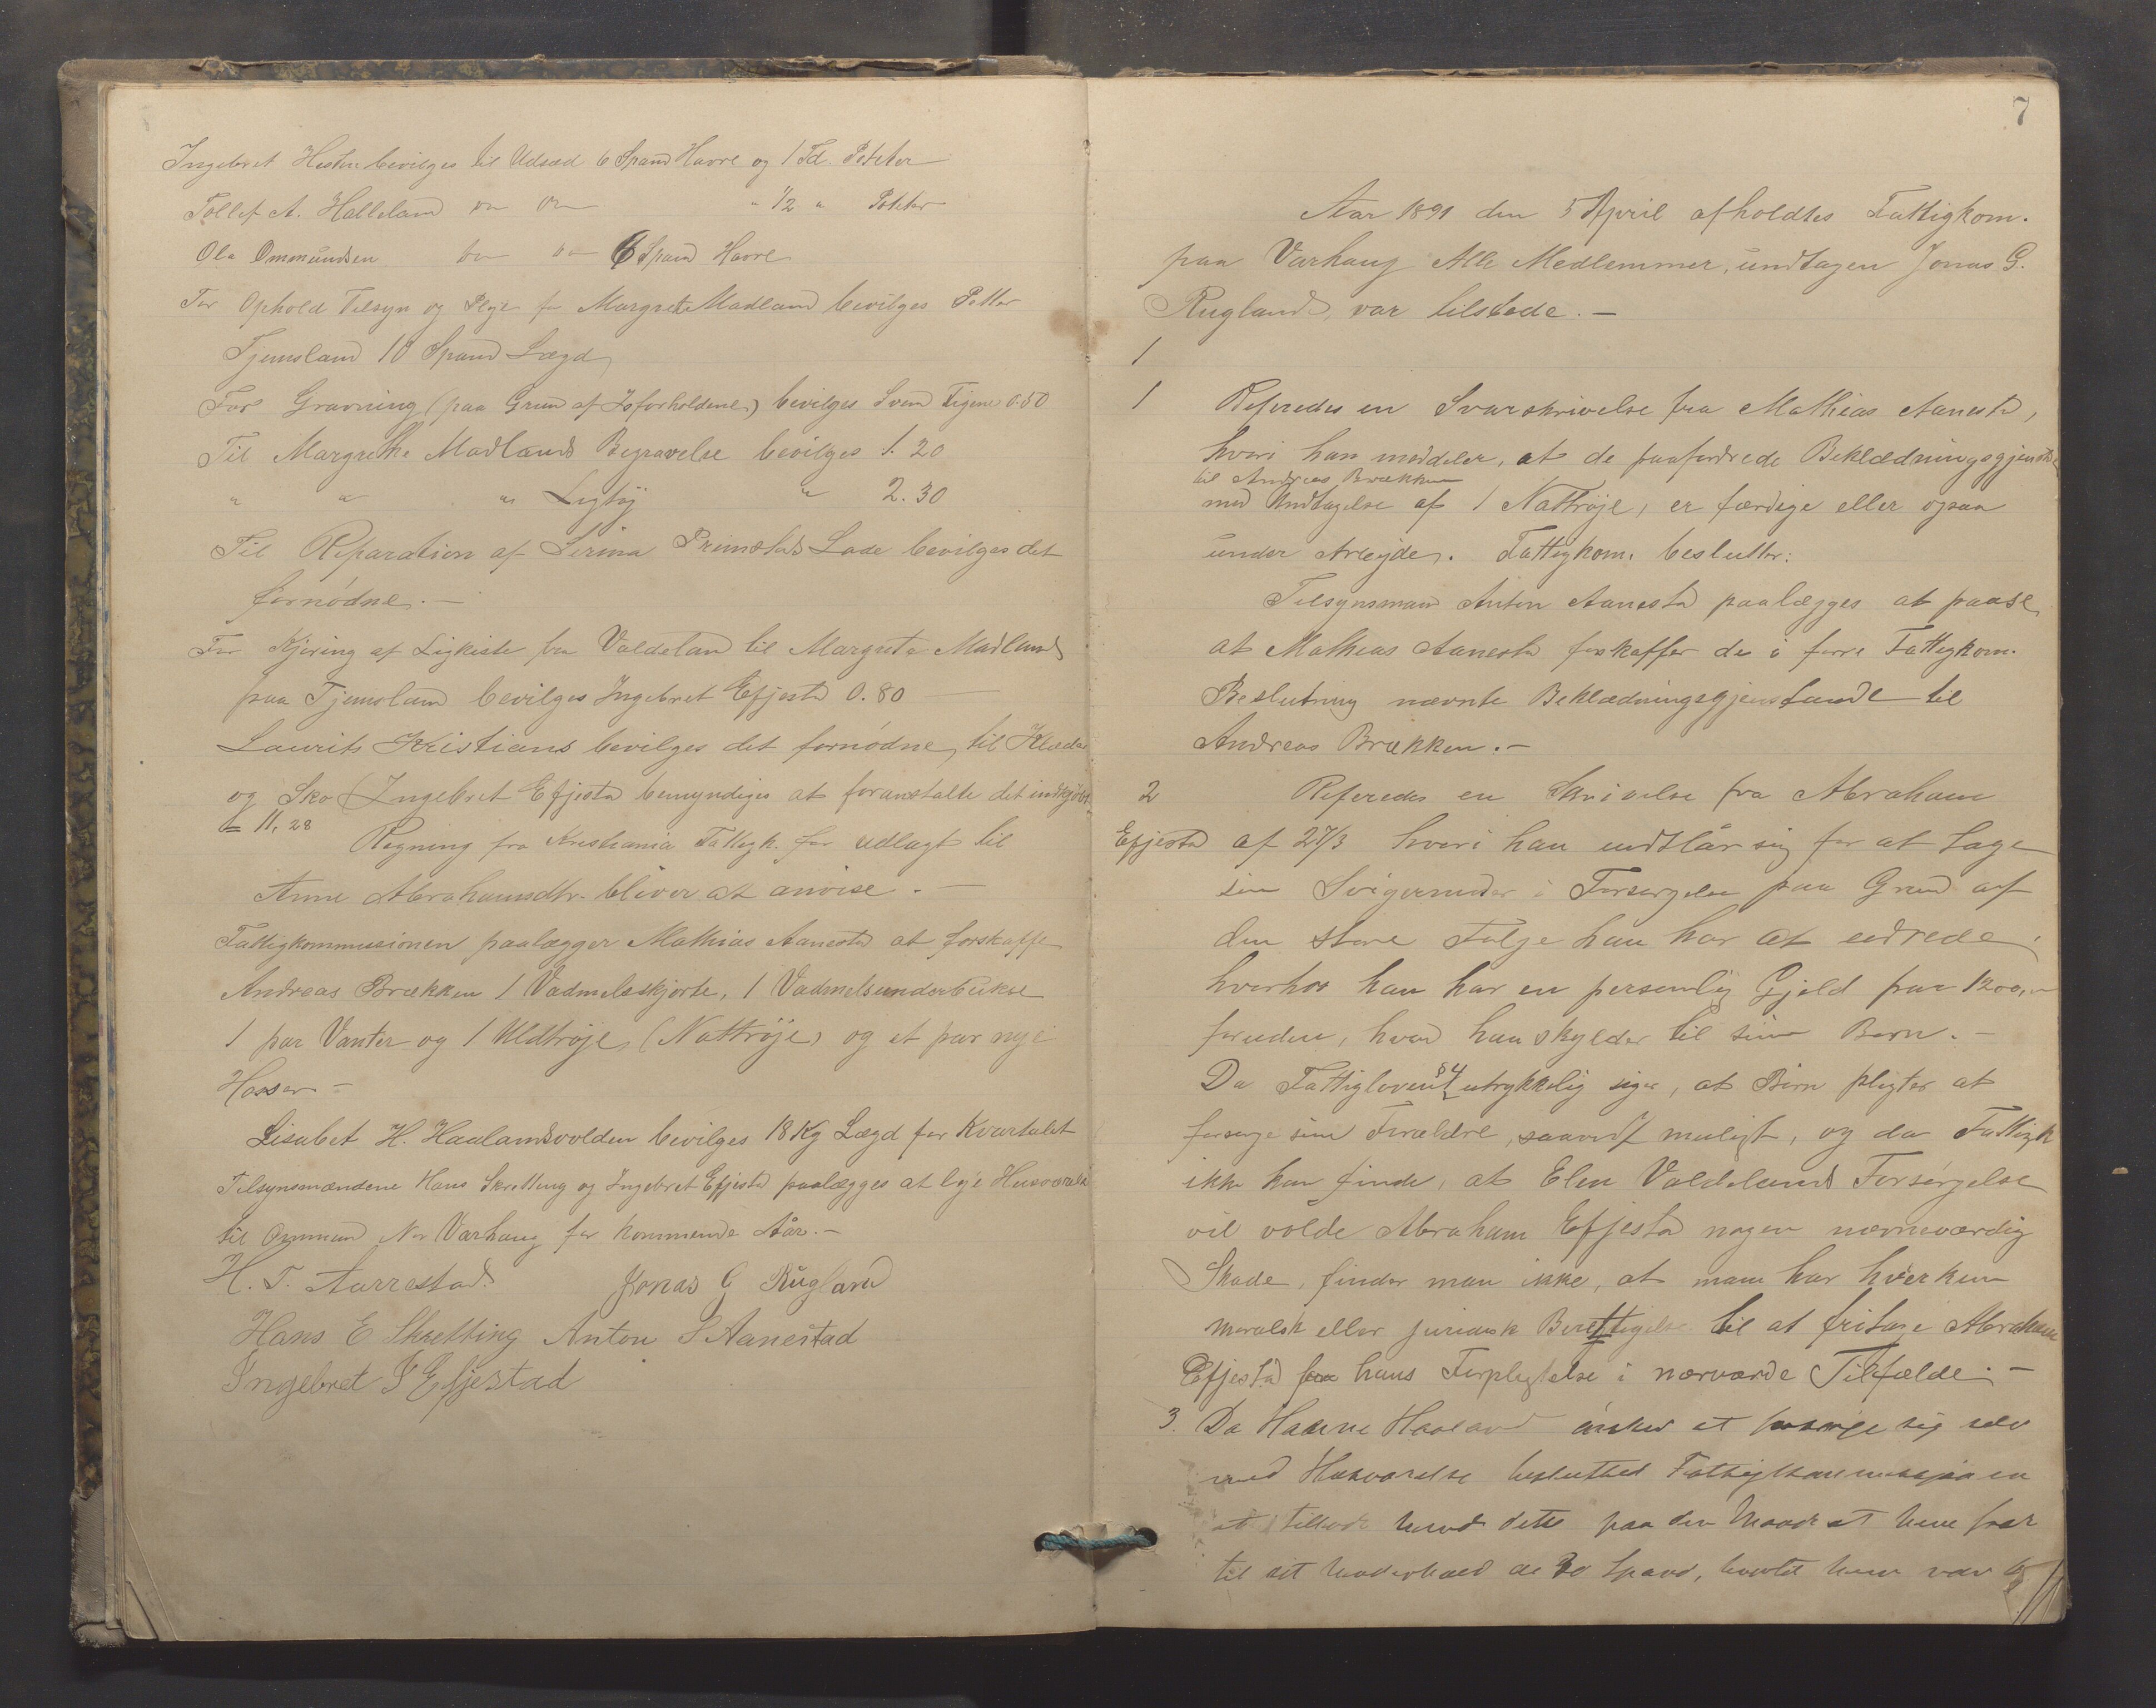 Ingebret Hestn. bevilges til Udsæd 6 Spand Havre og 1 Td. Poteter
Tollef A. Halleland " ½ " Poteter
Ola Ommundsen 6 Spand Havre
For Ophold Tilsyn og Pleje for Margrete Madland bevilges Petter
Tjemsland 10 Spand Lægd
For Gravning (paa Grund af Isforholdene) bevilges Svend Tigene 0.50
Til Margrethe Madlands Begravelse bevilges 1.20
" " " Ligtøj " 2.30
Til Reparation af Serina Primstads Lade bevilges det
fornødne. —
For Kjøring af Ligkiste fra Valdeland til Margreta Madland
paa Tjemsland bevilges Ingebret Efjestd 0.80
Laurits Kristians bevilges det fornødne til Klæder
og Sko (Ingebret Efjestd bemyndiges at foranstalte det indkjøbt
11,28
Regning fra Kristiania Fattigk. for udlagt til
Anne Abrahamsdtr. bliver at anvise. —
Fattigkommissionen paalægger Mathias Aanestd at forskaffe
Andreas Brækken 1 Vadmelsskjorte, 1 Vadmelsunderbukse
1 par Vanter og 1 Uldtrøje (Nattrøje) og et par nye
Hosser —
Lisabet H. Haalandsvolden bevilges 18 Kg Lægd for Kvartalet
Tilsynsmændene Hans Skretting og Ingebret Efjestd paalægges at leje Husværelse
til Ommund N. Varhaug for kommende Aar. —
H. T. Aarrestad. Jonas G Rugland
Hans E Skretting Anton S Aanestad
Ingebret I Efjestad
7
Aar 1891 den 5 April afholdtes Fattigkom.
paa Varhaug Alle Medlemmer, undtagen Jonas G.
Rugland, var tilstede. —
1
1 Referedes en Svarskrivelse fra Mathias Aanestd,
hvori han meddeler, at de paafordrede Beklædningsgjenstde
til Andreas Brækken
med Undtagelse af 1 Nattrøje, er færdige eller ogsaa
under Arbejde. Fattigkom. beslutter:
Tilsynsmand Anton Aanestd paalægges at paase
at Mathias Aanestd forskaffer de i forre Fattigkom.
Beslutning nævnte Beklædningsgjenstande til
Andreas Brækken. —
2 Referedes en Skrivelse fra Abraham
Efjestd af 27/3 hvori han undslår sig for at tage
sin Svigermoder i Forsørgelse paa Grund af
den store Følge han har at udrede,
hvorhos han har en personlig Gjeld paa 1200,-
foruden, hvad han skylder til sine Børn. —
Da Fattigloven §4 utrykkelig siger, at Børn pligter at
forsørge sine Forældre, saavidt muligt, og da Fattigk
ikke kan finde, at Elen Valdelands Forsørgelse
vil volde Abraham Efjestd nogen nævneværdig
Skade, finder man ikke, at man har hverken
moralsk eller juridisk Berettigelse til at fritage Abraham
Efjestd fra hans Forpligtelse i nærværde Tilfælde. —
3. Da Haaland ønsker at forsørge sig selv
med Husværelse besluttet Fattigkommissjonen
at tilbude dette paa den Maade at faar
til sit Underhold de 30 Spand, hvortil var